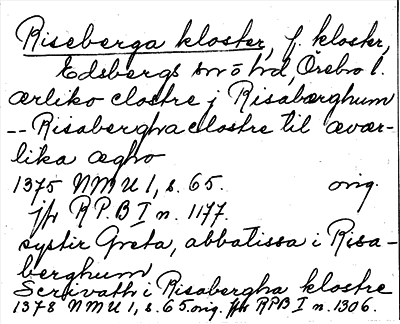 Riseberga kloster, f. kloster,
Edsbergs sn o hd, Örebro l.
ærliko clostre j Risabærghum
-- Risaberghaclostre til ævær-
lika ægho
1375 NMU 1, s. 65. orig.
jfr RPB I n. 1177.
systir Greta, abbatissa i Risa-
berghum
Scrivath i Risabergha klostre
1378 NMU 1, s. 65. orig. jfr RPB I n. 1306.